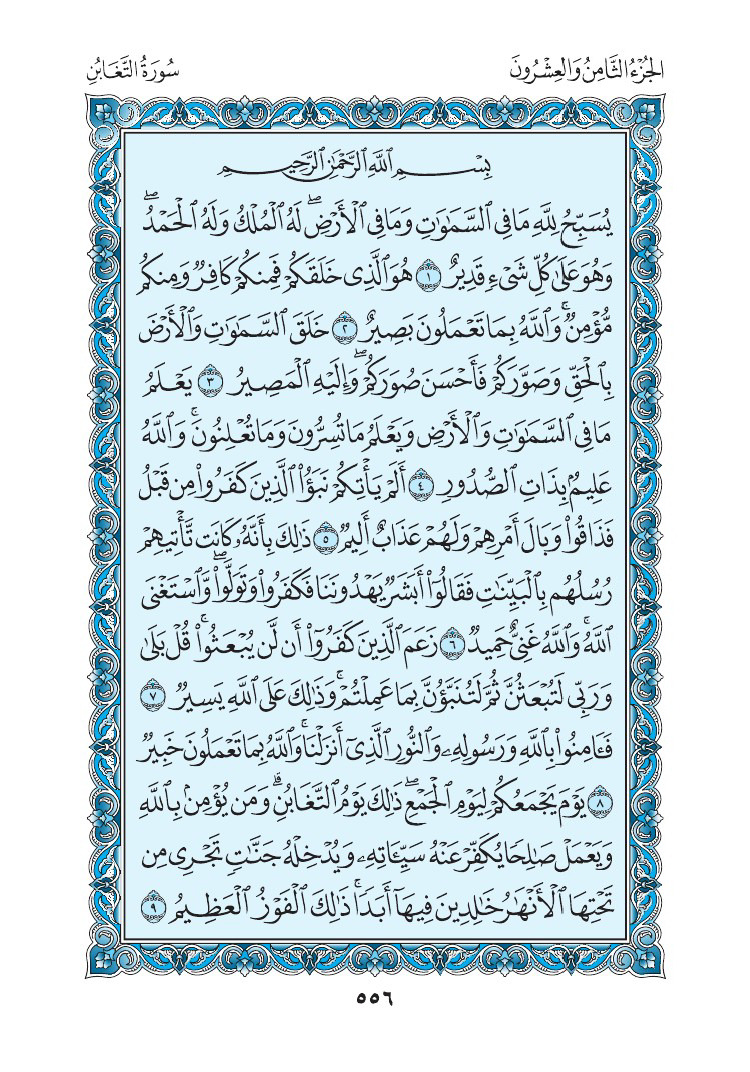 الجُزْءُ الثَّامِنُ وَالعِشْرُونَ
سُورَةُ التَّغَابُنِ
بِسْمِ اللَّهِ الرَّحْمَٰنِ الرَّحِيمِ
يُسَبِّحُ لِلَّهِ مَا فِي السَّمَٰوَٰتِ وَمَا فِي الْأَرْضِ ۖ لَهُ الْمُلْكُ وَلَهُ الْحَمْدُ ۖ
وَهُوَ عَلَىٰ كُلِّ شَىْءٍ قَدِيرٌ ١ هُوَ الَّذِى خَلَقَكُمْ فَمِنكُمْ كَافِرٌ وَمِنكُم
مُّؤْمِنٌ ۚ وَاللَّهُ بِمَا تَعْمَلُونَ بَصِيرٌ ٢ خَلَقَ السَّمَٰوَٰتِ وَالْأَرْضَ
بِالْحَقِّ وَصَوَّرَكُمْ فَأَحْسَنَ صُوَرَكُمْ ۖ وَإِلَيْهِ الْمَصِيرُ ٣ يَعْلَمُ
مَا فِي السَّمَٰوَٰتِ وَالْأَرْضِ وَيَعْلَمُ مَا تُسِرُّونَ وَمَا تُعْلِنُونَ ۚ وَاللَّهُ
عَلِيمٌۢ بِذَاتِ الصُّدُورِ ٤ أَلَمْ يَأْتِكُمْ نَبَؤُا۟ الَّذِينَ كَفَرُوا۟ مِن قَبْلُ
فَذَاقُوا۟ وَبَالَ أَمْرِهِمْ وَلَهُمْ عَذَابٌ أَلِيمٌ ٥ ذَٰلِكَ بِأَنَّهُۥ كَانَت تَّأْتِيهِمْ
رُسُلُهُم بِالْبَيِّنَٰتِ فَقَالُوٓا۟ أَبَشَرٌ يَهْدُونَنَا فَكَفَرُوا۟ وَتَوَلَّوا۟ ۚ وَّاسْتَغْنَى
اللَّهُ ۚ وَاللَّهُ غَنِىٌّ حَمِيدٌ ٦ زَعَمَ الَّذِينَ كَفَرُوٓا۟ أَن لَّن يُبْعَثُوا۟ ۚ قُلْ بَلَىٰ
وَرَبِّى لَتُبْعَثُنَّ ثُمَّ لَتُنَبَّؤُنَّ بِمَا عَمِلْتُمْ ۚ وَذَٰلِكَ عَلَى اللَّهِ يَسِيرٌ ٧
فَـَٔامِنُوا۟ بِاللَّهِ وَرَسُولِهِۦ وَالنُّورِ الَّذِىٓ أَنزَلْنَا ۚ وَاللَّهُ بِمَا تَعْمَلُونَ خَبِيرٌ
٨ يَوْمَ يَجْمَعُكُمْ لِيَوْمِ الْجَمْعِ ۖ ذَٰلِكَ يَوْمُ التَّغَابُنِ ۗ وَمَن يُؤْمِنۢ بِاللَّهِ
وَيَعْمَلْ صَٰلِحًا يُكَفِّرْ عَنْهُ سَيِّـَٔاتِهِۦ وَيُدْخِلْهُ جَنَّٰتٍ تَجْرِى مِن
تَحْتِهَا الْأَنْهَٰرُ خَٰلِدِينَ فِيهَآ أَبَدًا ۚ ذَٰلِكَ الْفَوْزُ الْعَظِيمُ ٩
٥٥٦